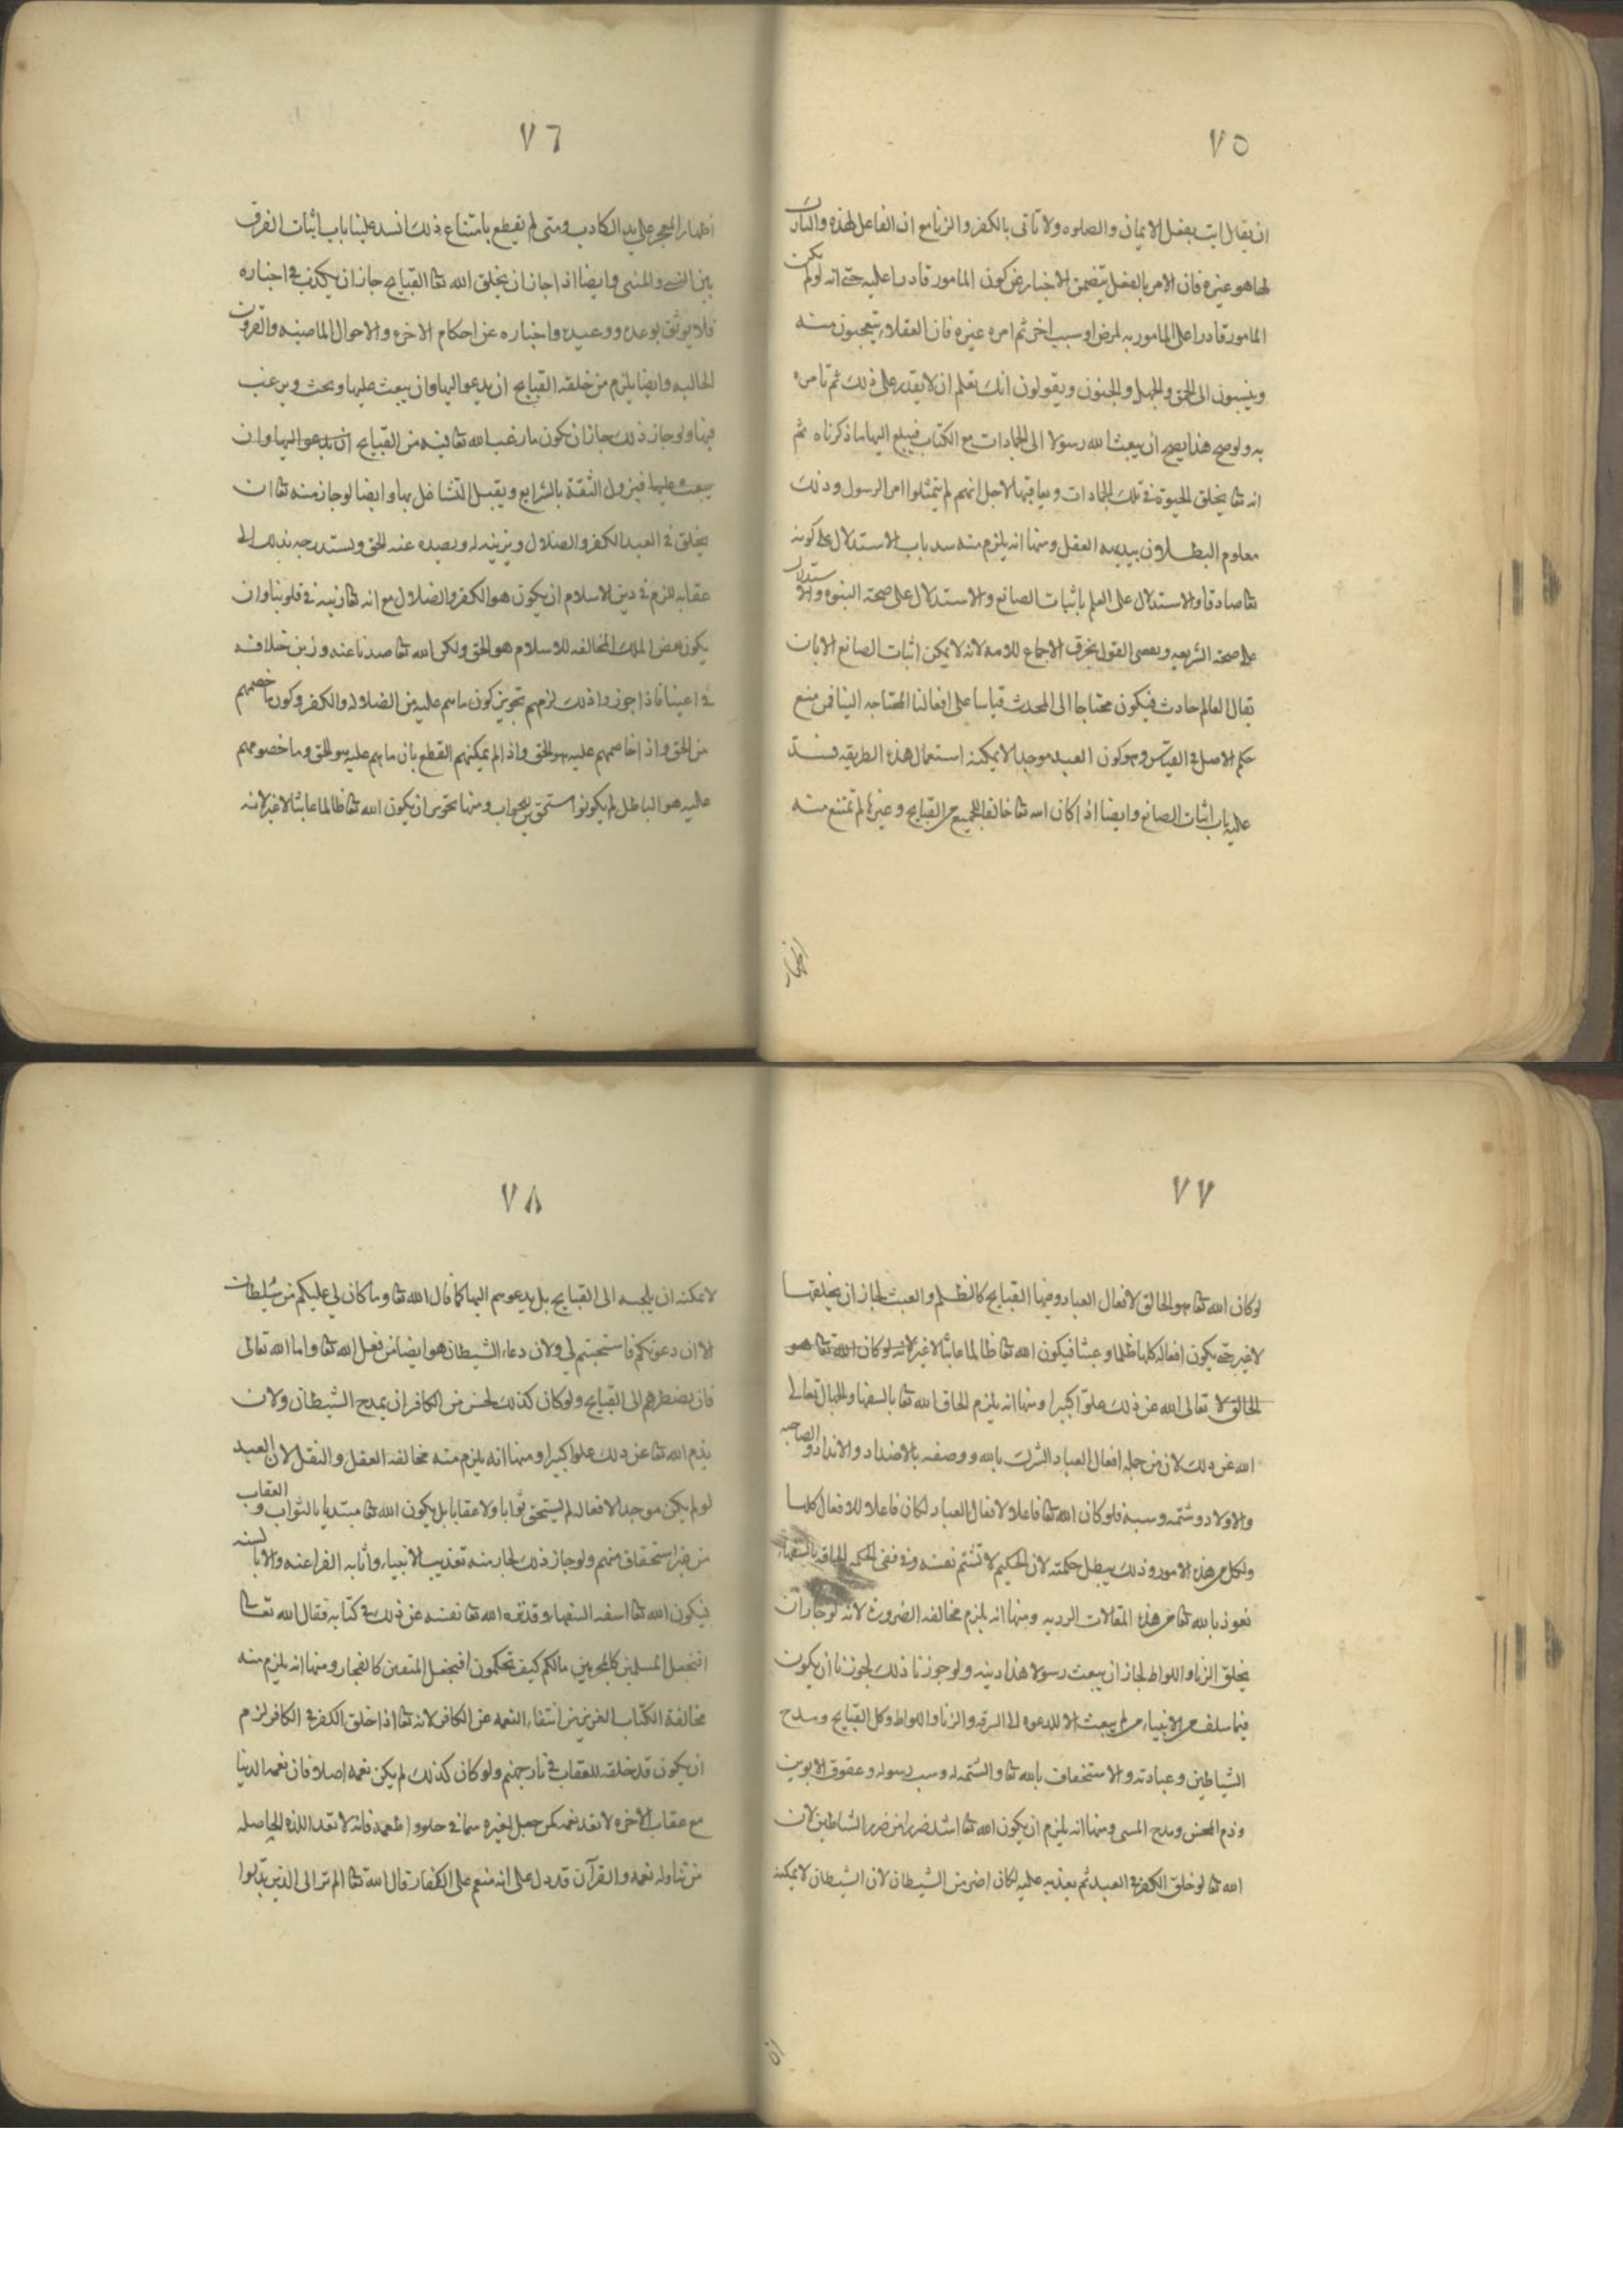 ٧٥
ان يقال ايت بفعل الايمان والصلوه ولا تاتى بالكفر والزنا مع ان الفاعل لهذه والتارك
لها هو غيره فان الامر بالفعل يتضمن الاخبار عن كون المامور قادرا عليه حتى انه لو لم يكن
المامور قادرا على المامور به لمرض او سبب اخر ثم امره غيره فان العقلاء يتعجبون منه
وينسبون الى الحمق والجهل والجنون ويقولون انك تعلم ان لا يقدر على ذلك ثم تامره
به ولو صح هذا يصح ان يبعث الله رسولا الى الجمادات مع الكتاب فيبلغ اليها ما ذكرناه ثم
انه تعا يخلق الحيوة في تلك الجمادات ويعاقبها لاجل انهم لم يتمثلوا امر الرسول وذلك
معلوم البطلان ببديهه العقل ومنها انه يلزم منه سد باب الاستدلال على كونه
تعا صادقا والاستدلال على العلم باثبات الصانع والاستدلال على صحة النبوه والاستدلال
على صحة الشريعه ويفضى القول بخرق الاجماع للامه لانه لا يمكن اثبات الصانع الا بان
يقال العالم حادث فيكون محتاجا الى المحدث قياسا على افعالنا المحتاجه الينا فمن منع
حكم الاصل في القياس وهو كون العبد موجدا لا يمكنه استعمال هذه الطريقه فينسد
عليه باب اثبات الصانع وايضا اذا كان الله تعا خالقا لجميع من القبايح وغيرها لم تمتنع منه
اظهار
٧٦
اظهار المعجز على يد الكاذب ومتى لم نقطع بامتناع ذلك انسد علينا باب اثبات الفرق
بين النبى والمتنبى وايضا اذا جاز ان يخلق الله تعا القبايح جاز ان يكذب في اخباره
فلا يوثق بوعده ووعيده واخباره عن احكام الاخره والاحوال الماضيه والقرون
الخاليه وايضا يلزم من خلقه القبايح ان يدعو اليها وان يبعث عليها ويحث ويرغب
فيها ولو جاز ذلك جاز ان يكون ما رغب الله تعا فيه من القبايح ان يدعو اليها وان
يبعث عليها فيزول الثقة بالشرايع ويقبل التشاغل بها وايضا لو جاز منه تعا ان
يخلق في العبد الكفر والضلال ويزينه له ويصده عنه الحق ويستدرجه بذلك الى
عقابه للزم في دين الاسلام ان يكون هو الكفر والضلال مع انه تعا زينه في قلوبنا وان
يكون بعض الملل المخالفه للاسلام هو الحق ولكن الله تعا صدنا عنه وزين خلافه
في اعيننا فاذا جوزوا ذلك لزمهم تجويز كون ما هم عليه من الضلاله والكفر وكون ما خصمهم
من الحق واذ اخاصمهم عليه هو الحق واذا لم يمكنهم القطع بان ما هم عليه هو الحق وما خصومهم
عليه هو الباطل لم يكونوا مستحقين للجواب ومنها تجويز ان يكون الله تعا ظالما عابثا لاغير لانه
٧٧
لو كان الله تعا هو الخالق لافعال العباد ومنها القبايح كالظلم والعبث لجاز ان يخلقها
لاغير حتى يكون افعاله كلها ظلما وعبثا فيكون الله تعا ظالما عابثا لاغير لانه لو كان الله تعا هو
الخالق لا تعالى الله عن ذلك علوا كبيرا ومنها انه يلزم الحاق الله تعا بالسفها والجهال تعالى
الله عن ذلك لان من جمله افعال العباد الشرك بالله ووصفه بالاضداد والانداد والصاحبه
والاولاد وشتمه وسبه فلو كان الله تعا فاعلا لافعال العباد لكان فاعلا للافعال كلها
ولكل من هذه الامور وذلك يبطل حكمته لان الحكيم لا تشتم نفسه وفي نفى الحكمه الحاقه بالسفهاء
نعوذ بالله تعا من هذه المقالات الرديه ومنها انه يلزم مخالفه الضرورة لانه لو جاز ان
يخلق الزنا واللواط لجاز ان يبعث رسولا هذا دينه ولو جوزنا ذلك لجوزنا ان يكون
فيما سلف من الانبياء من لم يبعث الا للدعوه الى السرقه والزنا واللواط وكل القبايح ومدح
الشياطين وعبادته والاستخفاف بالله تعا والشتم له وسب رسوله وعقوق الابوين
وذم المحسن ومدح المسى ومنها انه يلزم ان يكون الله تعا اشد ضررا من ضرر الشاطين لان
الله تعا لو خلق الكفر في العبد ثم يعذبه عليه لكان اضر من الشيطان لان الشيطان لا يمكنه
ان
٧٨
لا يمكنه ان يلجبه الى القبايح بل يدعوهم اليها كما قال الله تعا وما كان لى عليكم من سلطان
الا ان دعوتكم فاستجبتم لى ولان دعاء الشيطان هو ايضا من فعل الله تعا واما الله تعالى
فان يضطرهم الى القبايح ولو كان كذلك لحسن من الكافر ان يمدح الشيطان ولان
يذم الله تعا عن ذلك علوا كبيرا ومنها انه يلزم منه مخالفه العقل والنقل لان العبد
لو لم يكن موجدا لافعاله لم يستحق ثوابا ولا عقابا بل يكون الله تعا مبتديا بالثواب والعقاب
من غير استحقاق منهم ولو جاز ذلك لجاز منه تعذيب الانبياء واثابه الفراعنه والابالسه
فيكون الله تعا اسفه السفها وقد نزه الله تعا نفسه عن ذلك في كتابه فقال الله تعالى
افنجعل المسلمين كالمجرمين مالكم كيف تحكمون افنجعل المتقين كالفجار ومنها انه يلزم منه
مخالفة الكتاب العزيز من انتفاء النعمه عن الكافر لانه تعا اذا خلق الكفر في الكافر لزم
ان يكون قد خلقه للعقاب في نار جهنم ولو كان كذلك لم يكن نعمه اصلا فان نعمه الدنيا
مع عقاب الاخره لا تعد نعمه كمن جعل لغيره سما في حلو واطعمه فانه لا تعد اللذه الحاصله
من تناوله نعمه والقرآن قد دل على انه منعم على الكفار قال الله تعا الم تر الى الذين بدلوا